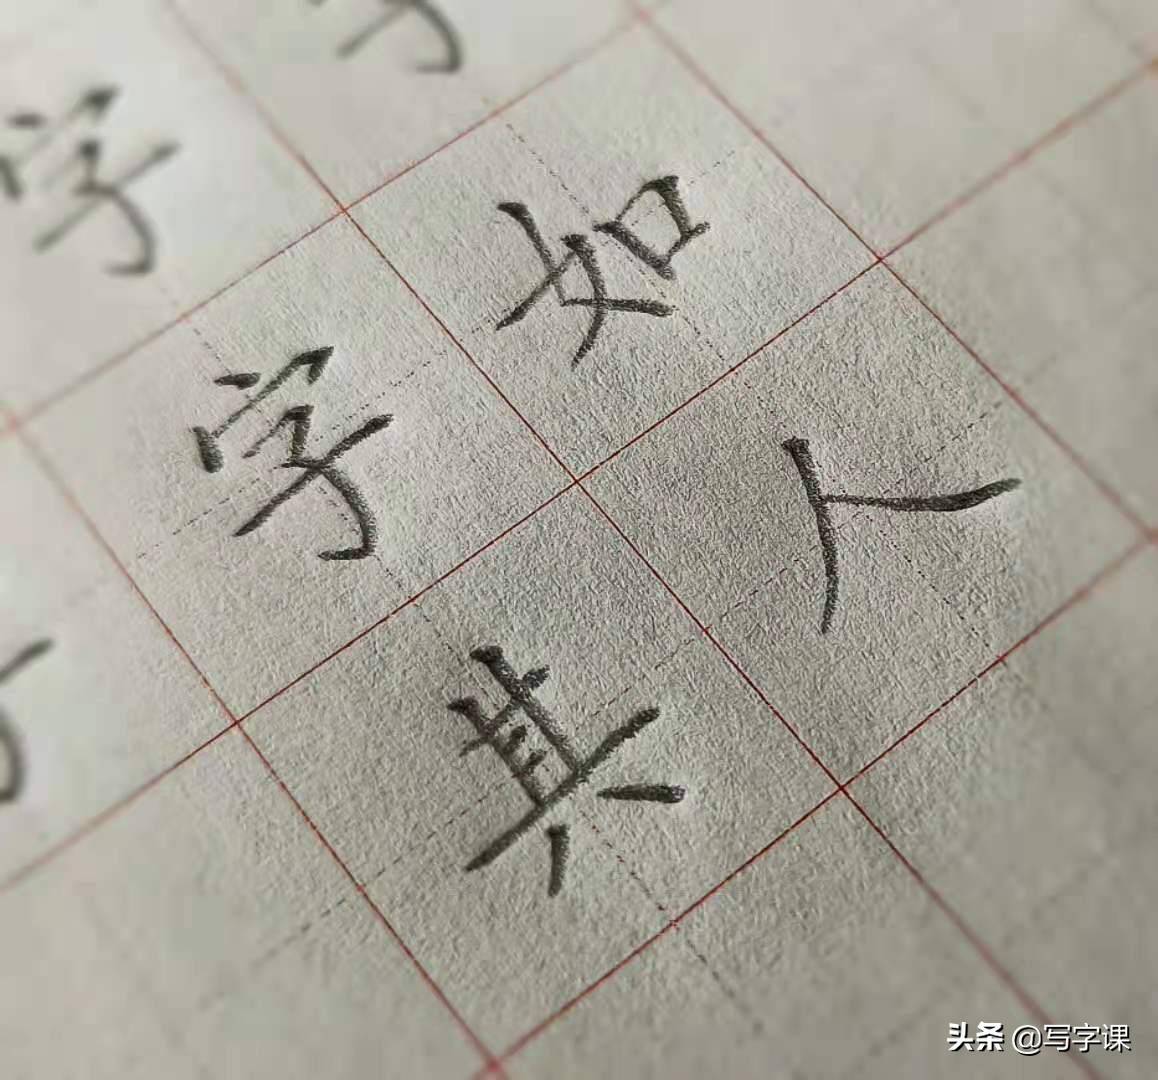 字如
其人
字
头条 @写字课